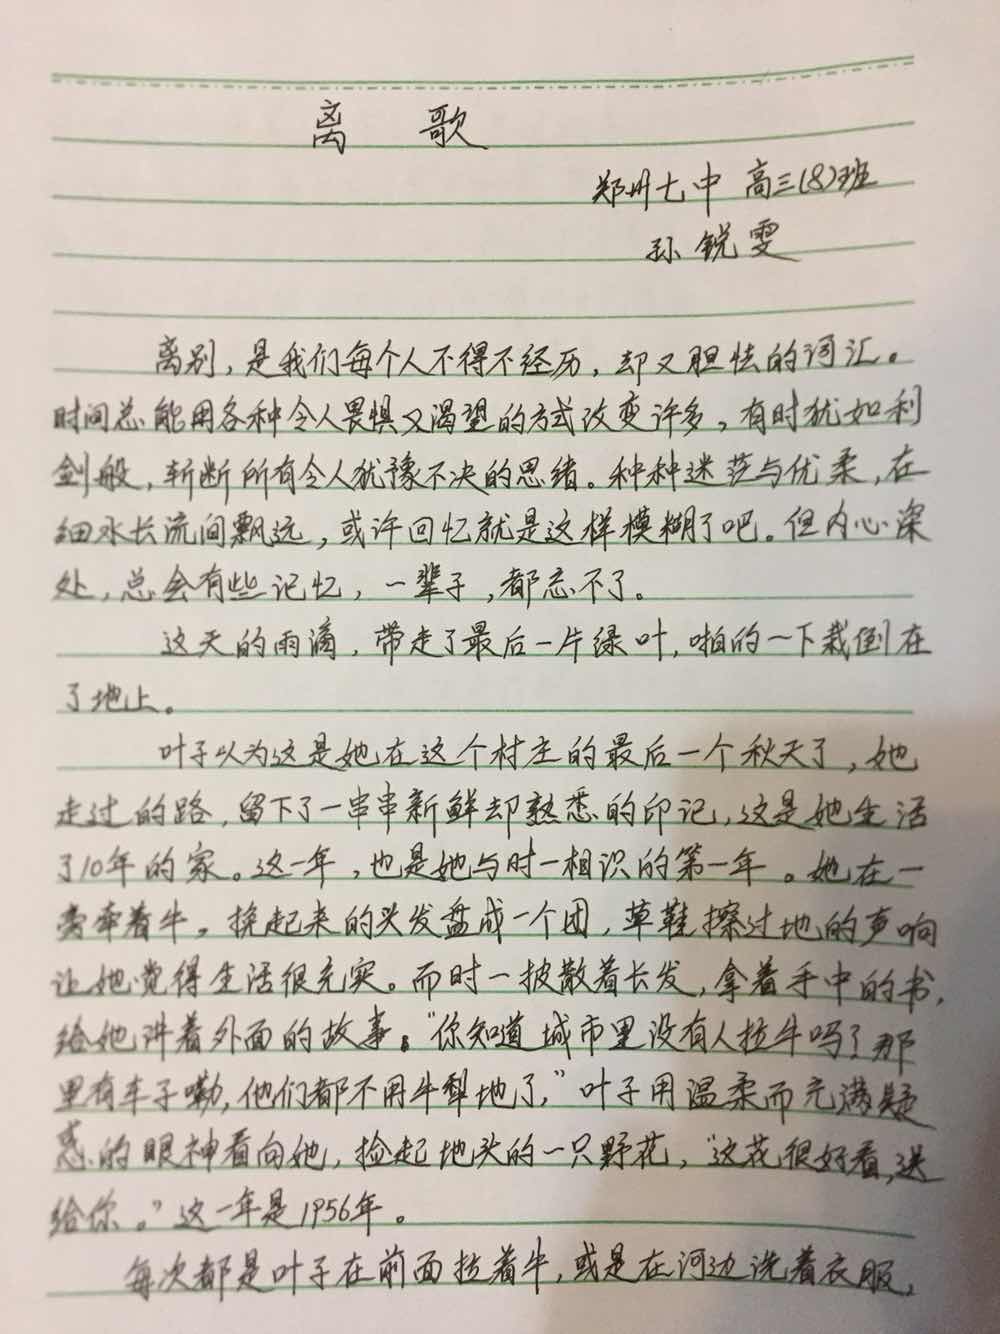 离 歌
郑州七中 高三(8)班
孙锐雯
离别，是我们每个人不得不经历，却又胆怯的词汇。
时间总能用各种令人畏惧又渴望的方式改变许多，有时犹如利
剑般，斩断所有令人犹豫不决的思绪。种种迷茫与优柔，在
细水长流间飘远，或许回忆就是这样模糊了吧。但内心深
处，总会有些记忆，一辈子，都忘不了。
这天的雨滴，带走了最后一片绿叶，啪的一下栽倒在
了地上。
叶子以为这是她在这个村庄的最后一个秋天了，她
走过的路，留下了一串串新鲜却熟悉的印记，这是她生活
了10年的家。这一年，也是她与时一相识的第一年。她在一
旁牵着牛，挽起来的头发盘成一个团，草鞋擦过地的声响
让她觉得生活很充实。而时一披散着长发，拿着手中的书，
给她讲着外面的故事。“你知道城市里没有人拉牛吗？那
里有车子嘞，他们都不用牛犁地了，”叶子用温柔而充满疑
惑的眼神看向她，捡起地头的一只野花，“这花很好看，送
给你。”这一年是1956年。
每次都是叶子在前面拉着牛，或是在河边洗着衣服，